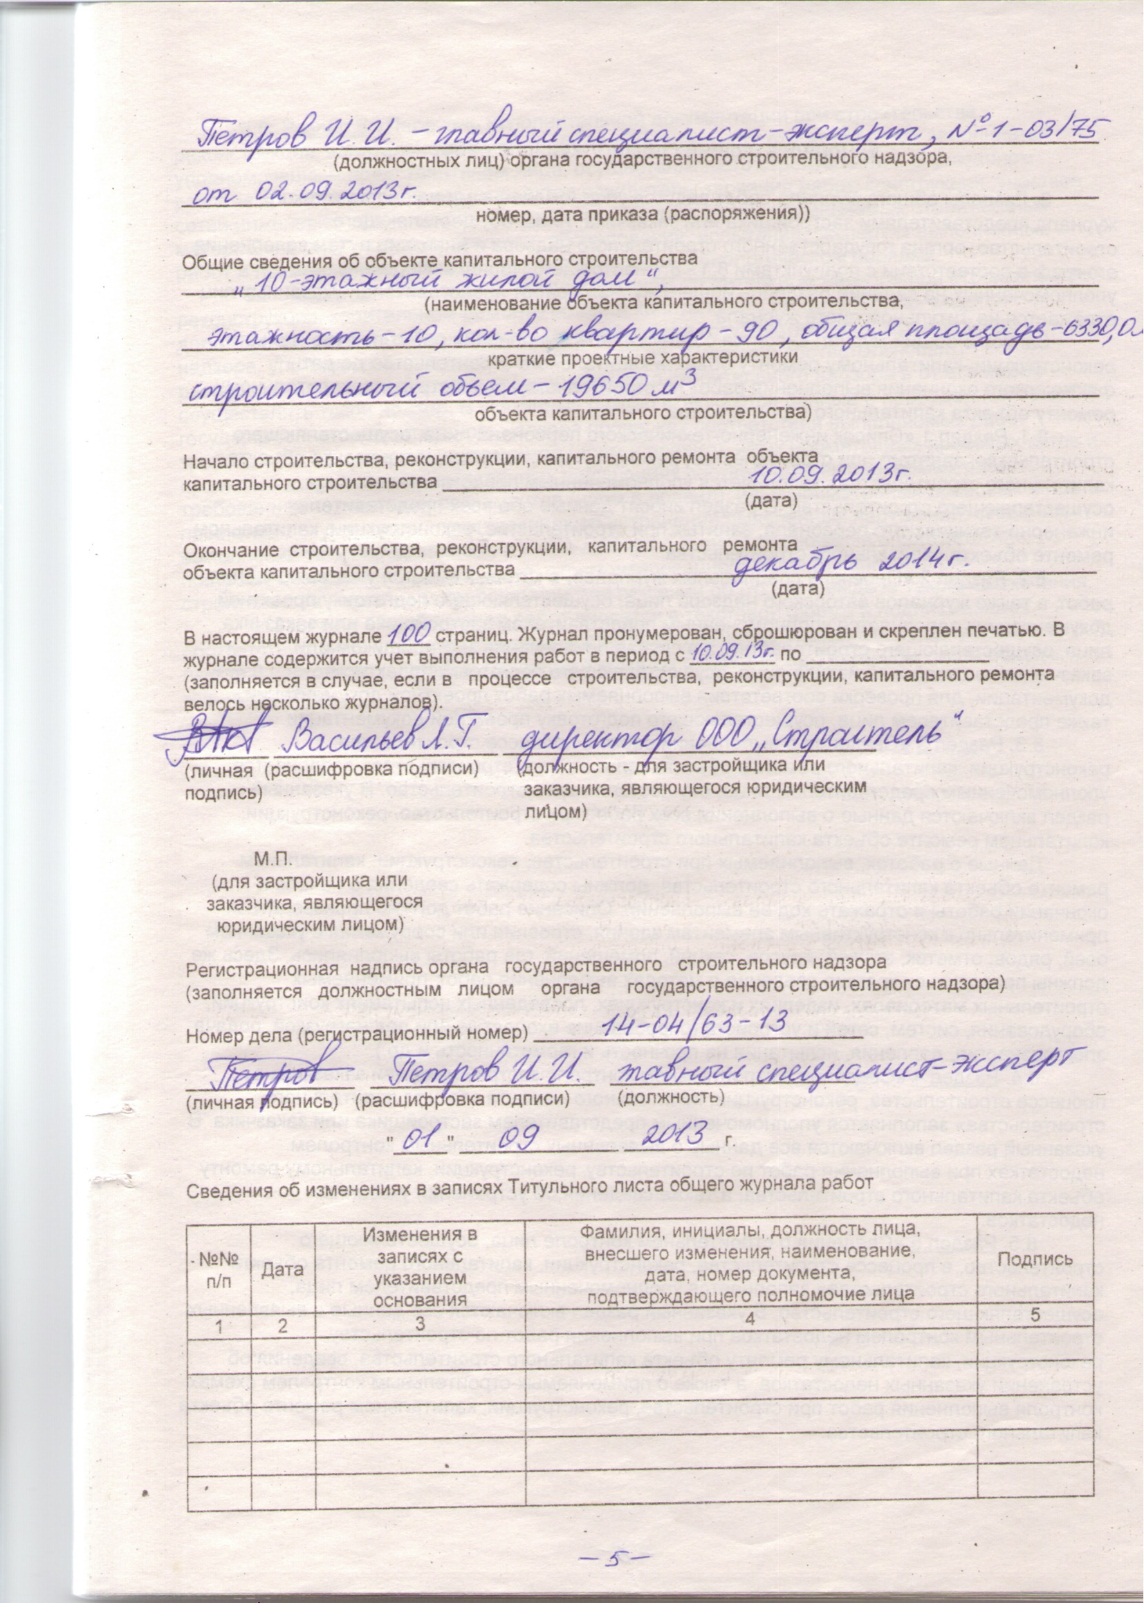 Петров И. И. – главный специалист-эксперт, № 1-03/75
(должностных лиц) органа государственного строительного надзора,
от 02.09.2013г.
номер, дата приказа (распоряжения))
Общие сведения об объекте капитального строительства
„10-этажный жилой дом“,
(наименование объекта капитального строительства,
этажность-10, кол-во квартир-90, общая площадь-6330,0
краткие проектные характеристики
строительный объем – 19650 м³
объекта капитального строительства)
Начало строительства, реконструкции, капитального ремонта объекта
капитального строительства 10.09.2013г.
(дата)
Окончание строительства, реконструкции, капитального ремонта
объекта капитального строительства декабрь 2014г.
(дата)
В настоящем журнале 100 страниц. Журнал пронумерован, сброшюрован и скреплен печатью. В
журнале содержится учет выполнения работ в период с 10.09.13г. по
(заполняется в случае, если в процессе строительства, реконструкции, капитального ремонта
велось несколько журналов).
Васильев А.Г. директор ООО „Строитель“
(личная (расшифровка подписи) (должность - для застройщика или
подпись) заказчика, являющегося юридическим
лицом)
М.П.
(для застройщика или
заказчика, являющегося
юридическим лицом)
Регистрационная надпись органа государственного строительного надзора
(заполняется должностным лицом органа государственного строительного надзора)
Номер дела (регистрационный номер) 14-04/63-13
Петров Петров И.И. главный специалист-эксперт
(личная подпись) (расшифровка подписи) (должность)
"01" 09 2013 г.
Сведения об изменениях в записях Титульного листа общего журнала работ
№№ п/п Дата Изменения в записях с указанием основания Фамилия, инициалы, должность лица, внесшего изменения, наименование, дата, номер документа, подтверждающего полномочие лица Подпись
1 2 3 4 5
– 5 –